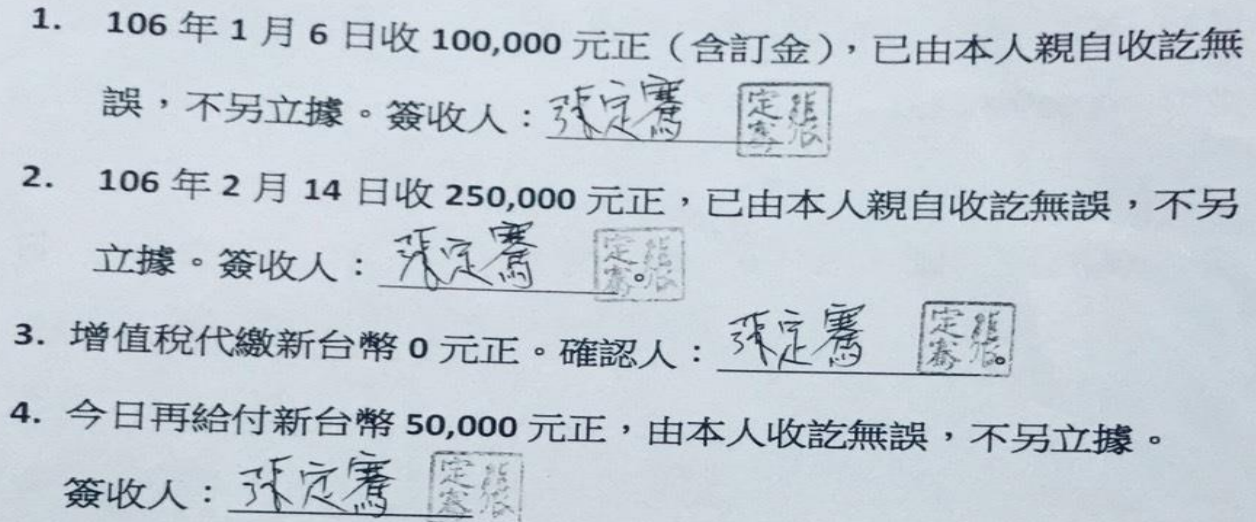 1. 106 年 1 月 6 日收 100,000 元正（含訂金），已由本人親自收訖無
誤，不另立據。簽收人：張定騫 張定騫
2. 106 年 2 月 14 日收 250,000 元正，已由本人親自收訖無誤，不另
立據。簽收人：張定騫 張定騫。
3. 增值稅代繳新台幣 0 元正。確認人：張定騫 張定騫。
4. 今日再給付新台幣 50,000 元正，由本人收訖無誤，不另立據。
簽收人：張定騫 張定騫